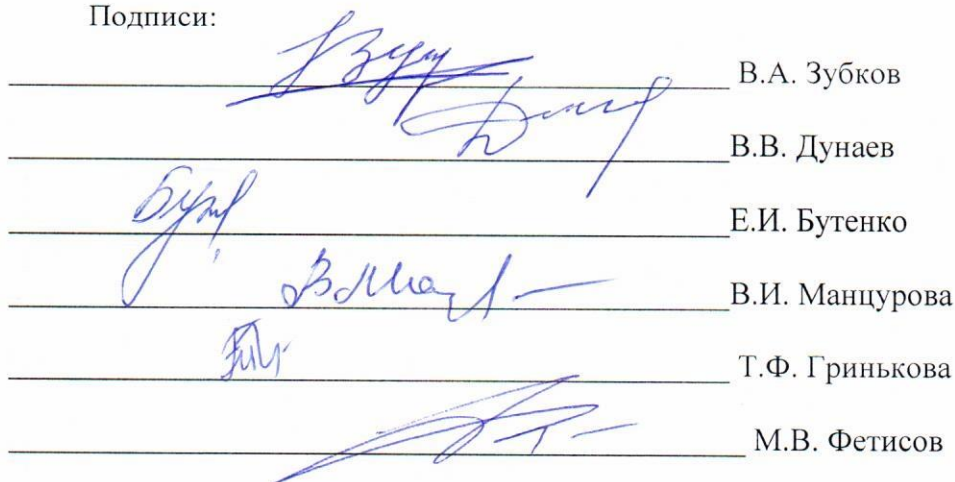 Подписи:
В.А. Зубков
В.В. Дунаев
Е.И. Бутенко
В.И. Манцурова
Т.Ф. Гринькова
М.В. Фетисов